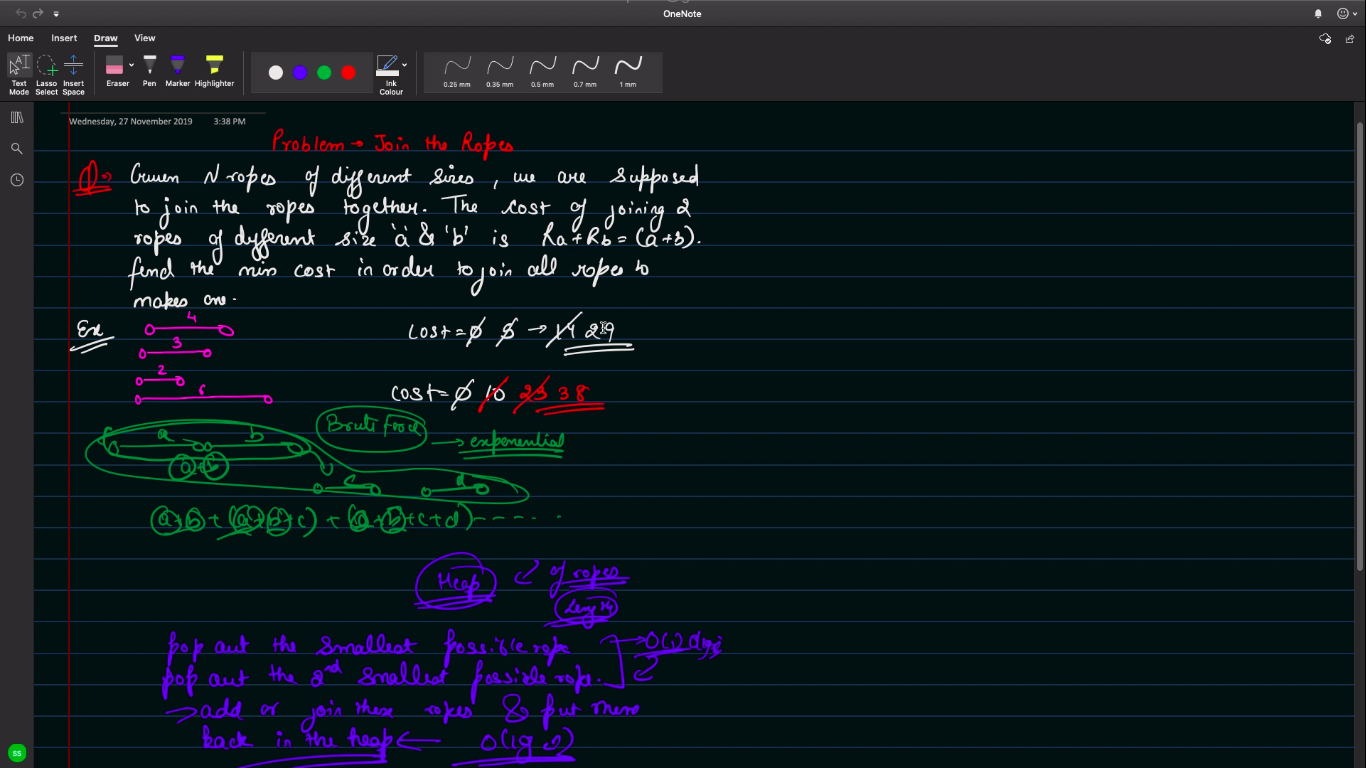 OneNote
Home Insert Draw View
Text Mode
Lasso Select
Insert Space
Eraser
Pen
Marker
Highlighter
Ink Colour
0.25 mm 0.35 mm 0.5 mm 0.7 mm 1 mm
Wednesday, 27 November 2019 3:38 PM
Problem → Join the Ropes
Q → Given N ropes of different sizes, we are supposed
to join the ropes together. The cost of joining 2
ropes of different size 'a' & 'b' is Ra+Rb=(a+b).
find the min cost in order to join all ropes to
makes one.
Ex
4
3
2
6
cost = 0 5 → 14 29
cost = 0 10 23 38
Brute Force → exponential
a b
a+b
c d
(a+b) + (a+b+c) + (a+b+c+d) ------
Heap
of ropes
length
pop out the smallest possible rope
pop out the 2nd smallest possible rope.
→ add or join these ropes & put them
back in the heap ←
SS